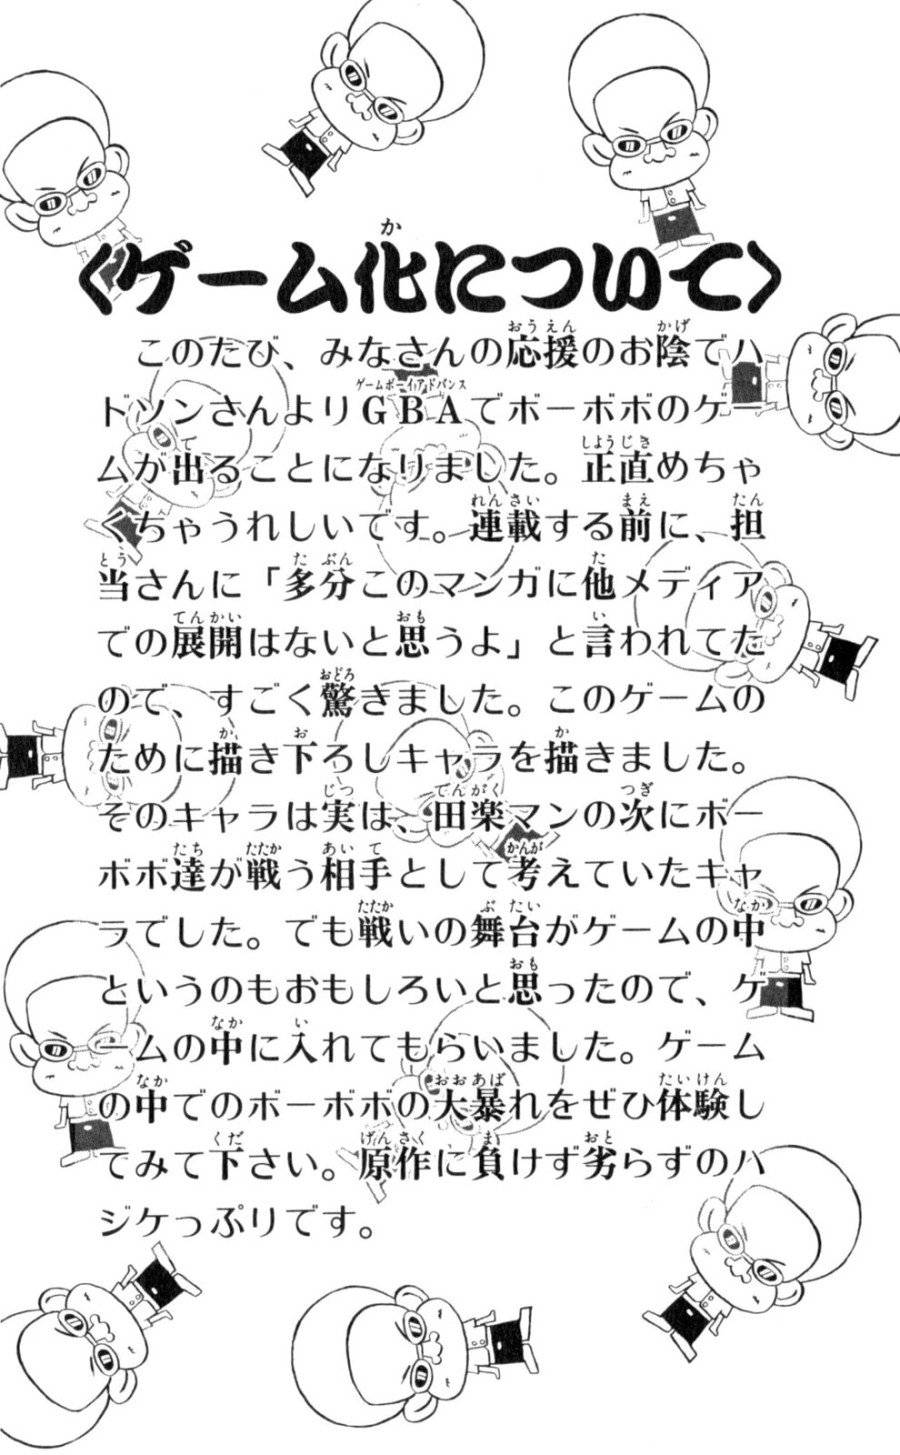 〈ゲーム化について〉
このたび、みなさんの応援のお陰でハ
ドソンさんよりGBAでボーボボのゲー
ムが出ることになりました。正直めちゃ
くちゃうれしいです。連載する前に、担
当さんに「多分このマンガに他メディア
での展開はないと思うよ」と言われてた
ので、すごく驚きました。このゲームの
ために描き下ろしキャラを描きました。
そのキャラは実は、田楽マンの次にボー
ボボ達が戦う相手として考えていたキャ
ラでした。でも戦いの舞台がゲームの中
というのもおもしろいと思ったので、ゲ
ームの中に入れてもらいました。ゲーム
の中でのボーボボの大暴れをぜひ体験し
てみて下さい。原作に負けず劣らずのハ
ジケっぷりです。